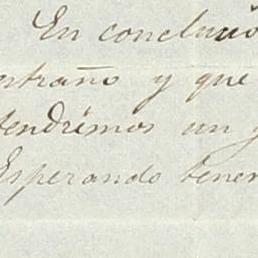 En conclusió
estraño y que
tendrémos un
Esperando tener